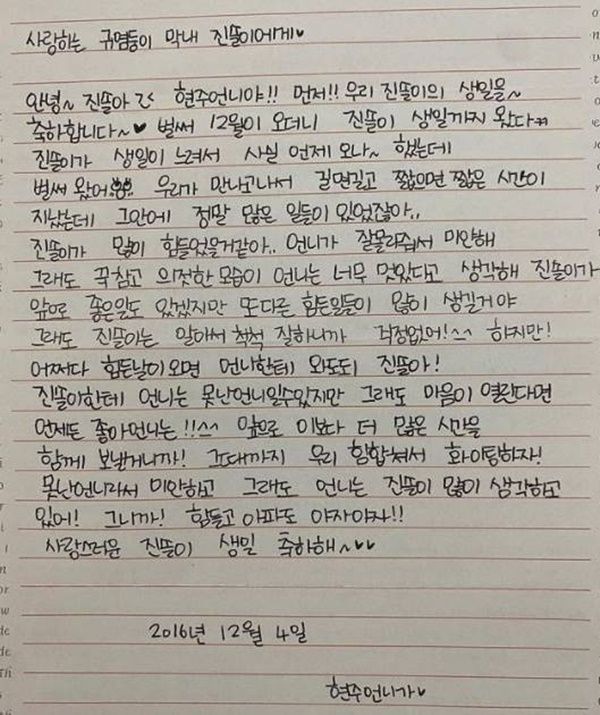 사랑하는 귀염둥이 막내 진쏠이에게♥
안녕~ 진쏠아 현주언니야!! 먼저!! 우리 진쏠이의 생일을~
축하합니다~♥ 벌써 12월이 오더니 진쏠이 생일까지 왔다ㅠㅠ
진쏠이가 생일이 느려서 사실 언제 오나~ 했는데
벌써 왔어 우리가 만나고나서 길면길고 짧으면 짧은 시간이
지났는데 그안에 정말 많은 일들이 있었잖아..
진쏠이가 많이 힘들었을거같아.. 언니가 잘몰라줘서 미안해
그래도 꾹참고 의젓한 모습이 언니는 너무 멋있다고 생각해 진쏠이가
앞으로 좋은일도 있겠지만 또다른 힘든일들이 많이 생길거야
그래도 진쏠이는 알아서 척척 잘하니까 걱정없어!^^ 하지만!
어쩌다 힘든날이오면 언니한테 와도되 진쏠아!
진쏠이한테 언니는 못난언니일수있지만 그래도 마음이 열린다면
언제든 좋아언니는!!^^ 앞으로 이보다 더 많은 시간을
함께 보낼거니까! 그때까지 우리 힘합쳐서 화이팅하자!
못난언니라서 미안하고 그래도 언니는 진쏠이 많이 생각하고
있어! 그니까! 힘들고 아파도 아자아자!!
사랑스러운 진쏠이 생일 축하해~♥♥
2016년 12월 4일
현주언니가♥